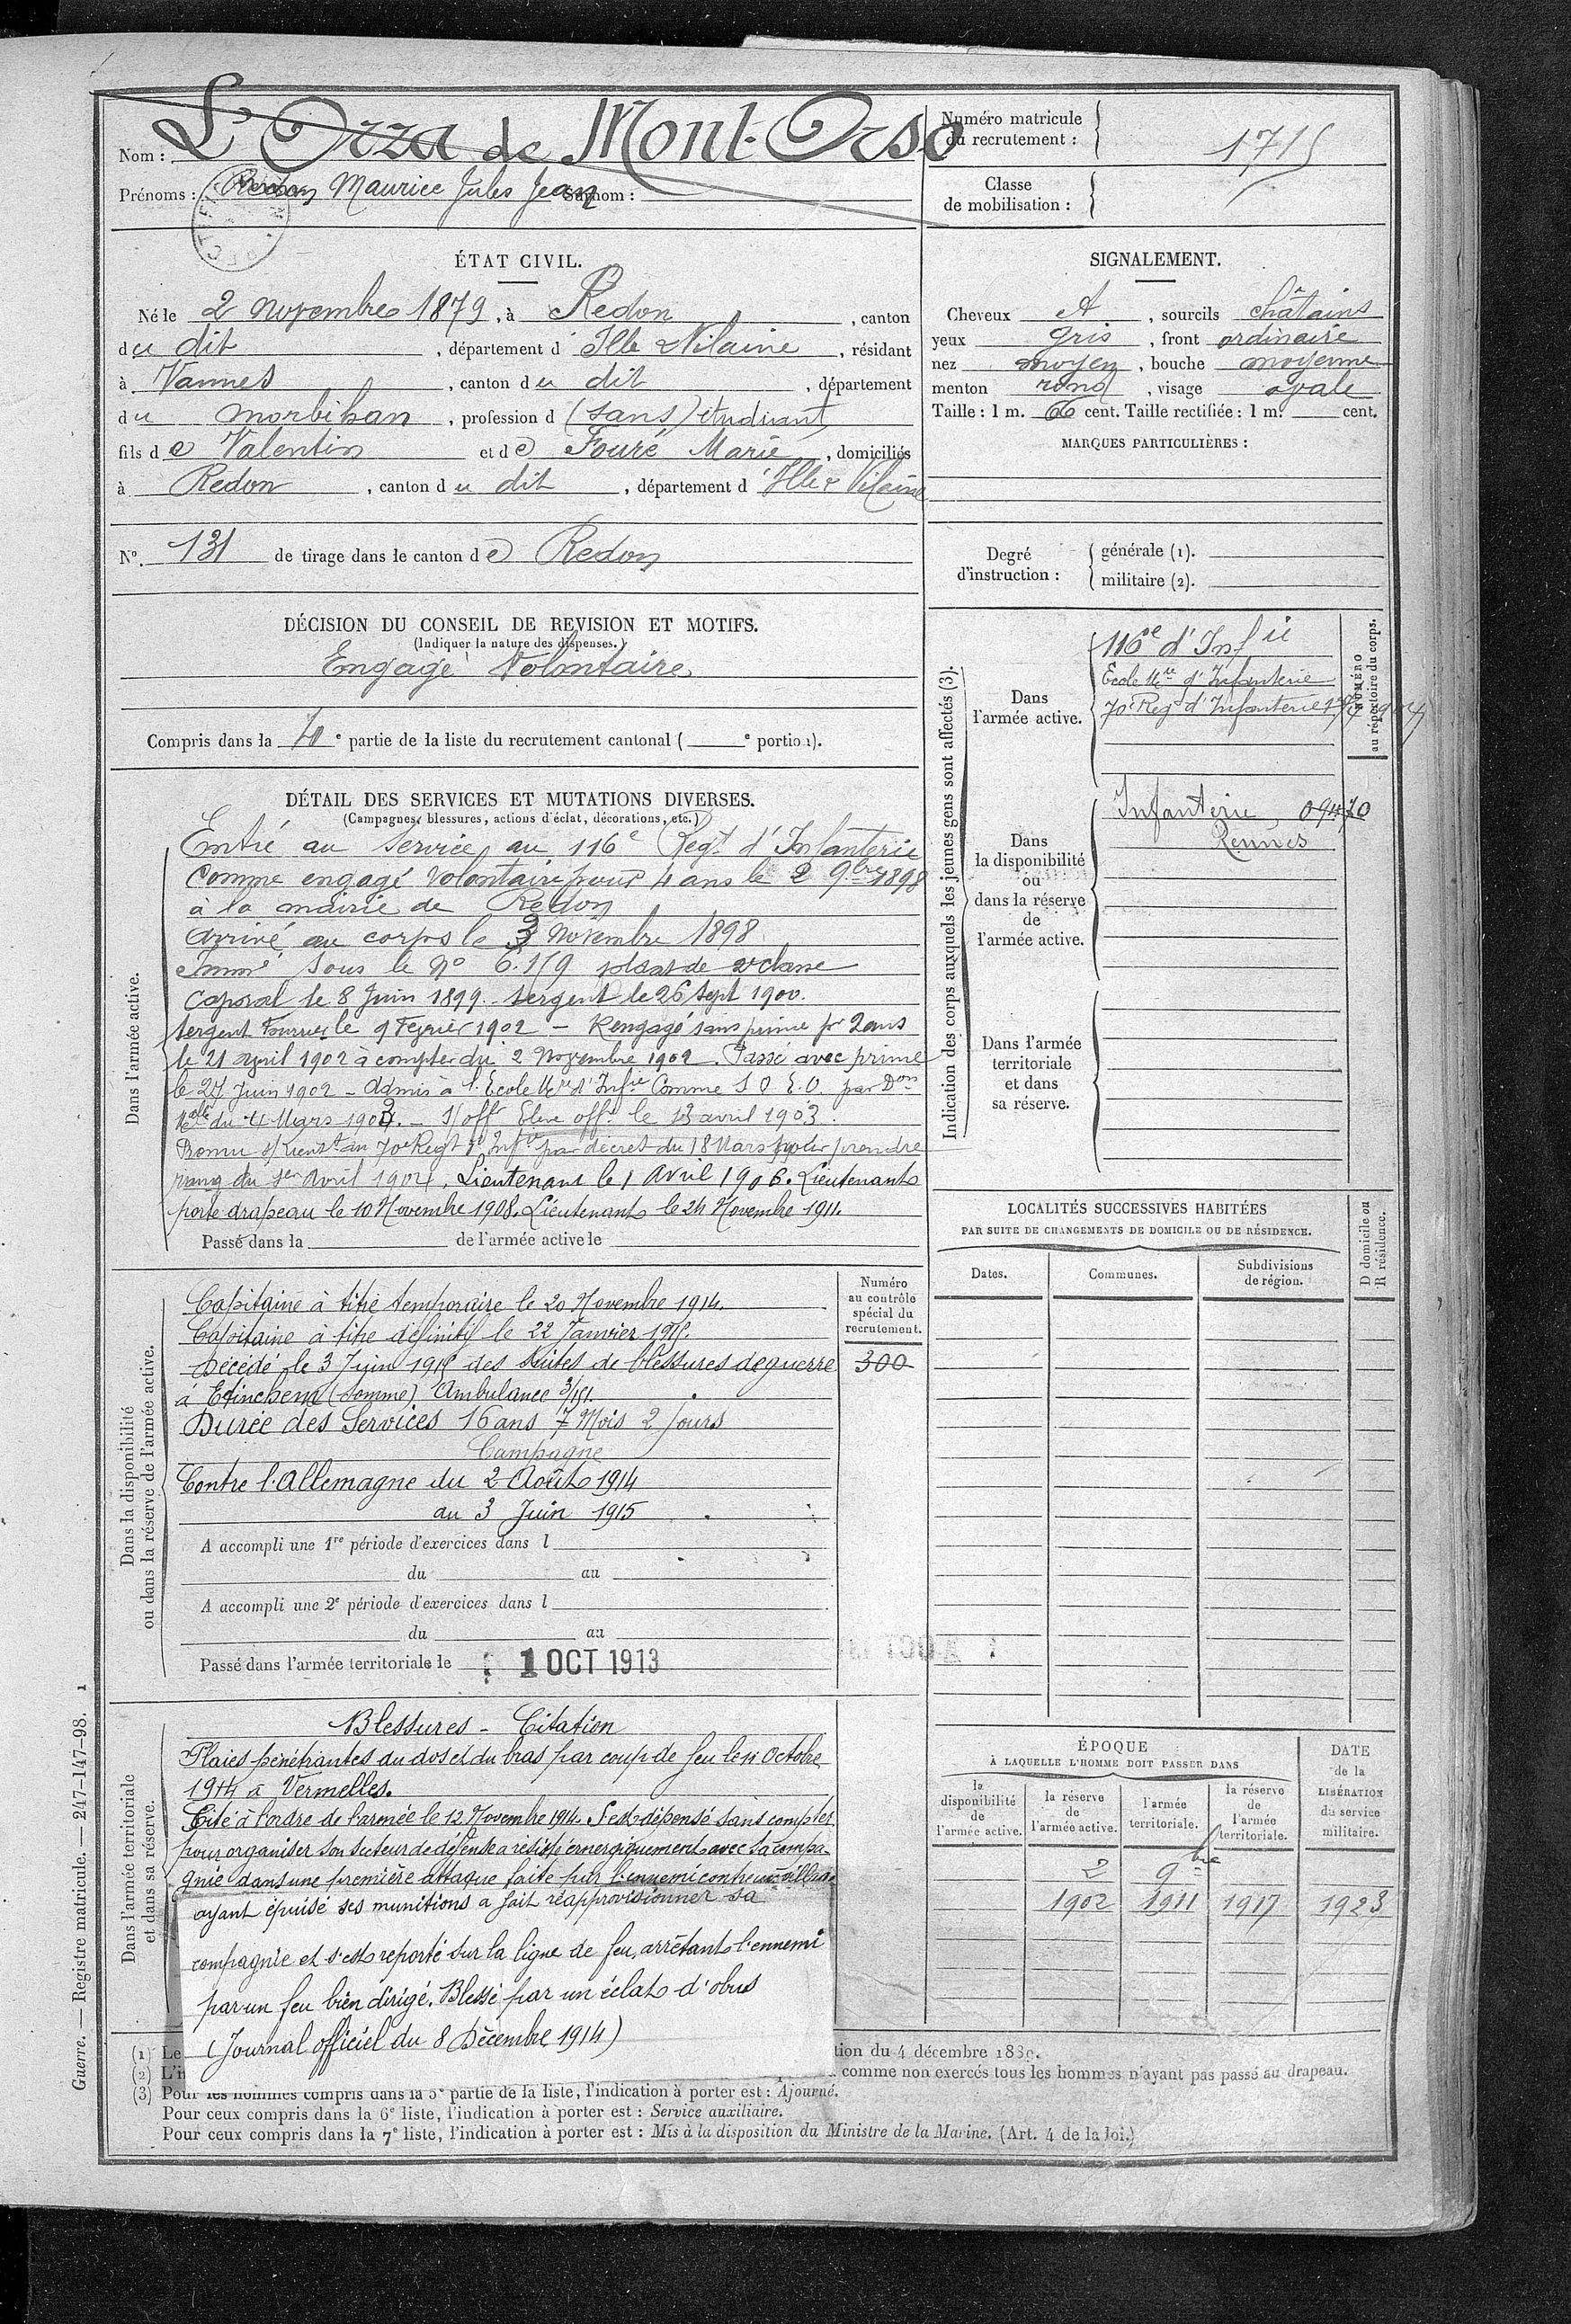 Nom : L'Orza de Mont-Orso
Prénoms : (Redon) Maurice Jules Jean Surnom :
Numéro matricule du recrutement : 1715
Classe de mobilisation :
ÉTAT CIVIL.
Né le 2 novembre 1879, à Redon, canton
du dit, département d'Ille & Vilaine, résidant
à Vannes, canton du dit, département
du morbihan, profession d (sans) étudiant
fils de Valentin et de Fouré Marie, domiciliés
à Redon, canton du dit, département d'Ille & Vilaine
N° 131 de tirage dans le canton de Redon
SIGNALEMENT.
Cheveux et, sourcils châtains
yeux gris, front ordinaire
nez moyen, bouche moyenne
menton rond, visage ovale
Taille : 1 m. 66 cent. Taille rectifiée : 1 m. cent.
MARQUES PARTICULIÈRES :
Degré d'instruction : générale (1).
militaire (2).
DÉCISION DU CONSEIL DE REVISION ET MOTIFS.
(Indiquer la nature des dispenses.)
Engagé Volontaire
Compris dans la 4e partie de la liste du recrutement cantonal ( e portion).
DÉTAIL DES SERVICES ET MUTATIONS DIVERSES.
(Campagnes, blessures, actions d'éclat, décorations, etc.)
Dans l'armée active.
Entré au service au 116e Régt d'Infanterie
comme engagé volontaire pour 4 ans le 2 9bre 1898
à la mairie de Redon
Arrivé au corps le 3 Novembre 1898
Immé sous le No 6.159 soldat de 2e classe
Caporal le 8 Juin 1899. Sergent le 26 Sept 1900.
Sergent Fourrier le 9 Février 1902 - Rengagé sans prime pr 2 ans
le 21 avril 1902 à compter du 2 Novembre 1902. Passé avec prime
le 27 Juin 1902 - Admis à l'Ecole Mre d'Infie comme S.O.E.O. par Don
Melle du 4 Mars 1903. - S/off Elève offr le 13 avril 1903.
Promu s/Lieut au 70e Régt d'Infie par décret du 18 Mars pour prendre
rang du 1er Avril 1904. Lieutenant le 1 Avril 1906. Lieutenant
porte drapeau le 10 Novembre 1908. Lieutenant le 24 Novembre 1911.
Passé dans la de l'armée active le
Dans la disponibilité ou dans la réserve de l'armée active.
Capitaine à titre temporaire le 20 Novembre 1914.
Capitaine à titre définitif le 22 Janvier 1915.
Décédé le 3 Juin 1915 des suites de blessures de guerre
à Etinehem (Somme) Ambulance 3/151.
Durée des Services 16 ans 7 Mois 2 jours
Campagne
Contre l'Allemagne du 2 Août 1914
au 3 Juin 1915
A accompli une 1re période d'exercices dans l
du au
A accompli une 2e période d'exercices dans l
du au
Passé dans l'armée territoriale le 1 OCT 1913
Numéro au contrôle spécial du recrutement.
300
Dans l'armée territoriale et dans sa réserve.
Blessures - Citation
Plaies pénétrantes du dos et du bras par coup de feu le 11 Octobre
1914 à Vermelles.
Cité à l'ordre de l'armée le 12 Novembre 1914. S'est dépensé sans compter
pour organiser son secteur de défense a résisté énergiquement avec sa compa-
gnie dans une première attaque faite par l'ennemi contre un village
ayant épuisé ses munitions a fait réapprovisionner sa
compagnie et s'est reporté sur la ligne de feu, arrêtant l'ennemi
par un feu bien dirigé. Blessé par un éclat d'obus
(Journal officiel du 8 Décembre 1914)
Indication des corps auxquels les jeunes gens sont affectés (3).
NUMÉRO au répertoire du corps.
Dans l'armée active.
116e d'Infie
Ecole Mre d'Infanterie
70e Régt d'Infanterie
Dans la disponibilité ou dans la réserve de l'armée active.
Infanterie 09470
Rennes
Dans l'armée territoriale et dans sa réserve.
LOCALITÉS SUCCESSIVES HABITÉES
PAR SUITE DE CHANGEMENTS DE DOMICILE OU DE RÉSIDENCE.
Dates. Communes. Subdivisions de région.
D domicile ou R résidence.
ÉPOQUE
À LAQUELLE L'HOMME DOIT PASSER DANS
la disponibilité de l'armée active. la réserve de l'armée active. l'armée territoriale. la réserve de l'armée territoriale.
DATE de la LIBÉRATION du service militaire.
2 9bre
1902 1911 1917 1923
(1) Le
tion du 4 décembre 1889.
(2) L'in
comme non exercés tous les hommes n'ayant pas passé au drapeau.
(3) Pour les hommes compris dans la 5e partie de la liste, l'indication à porter est : Ajourné.
Pour ceux compris dans la 6e liste, l'indication à porter est : Service auxiliaire.
Pour ceux compris dans la 7e liste, l'indication à porter est : Mis à la disposition du Ministre de la Marine. (Art. 4 de la loi.)
Guerre. — Registre matricule. — 247-147-98. 1